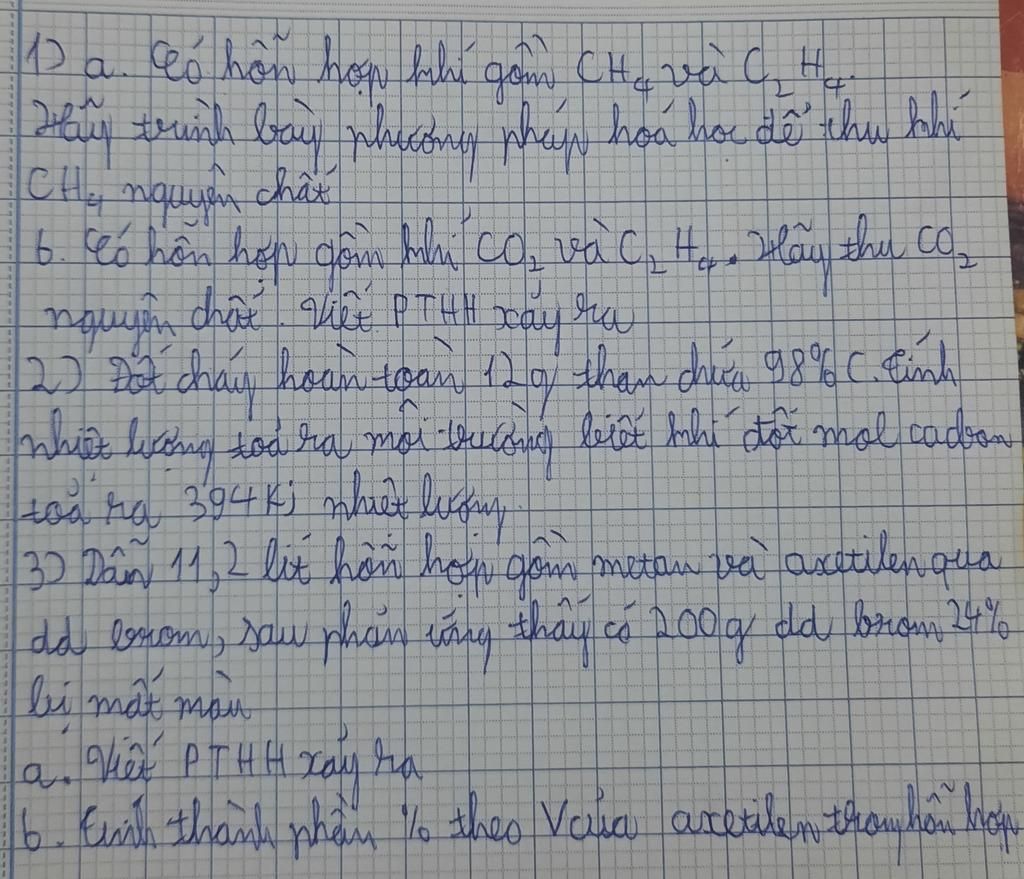 1) a. Có hỗn hợp khí gồm CH₄ và C₂H₄.
Hãy trình bày phương pháp hoá học để thu khí
CH₄ nguyên chất
b. Có hỗn hợp gồm khí CO₂ và C₂H₄. Hãy thu CO₂
nguyên chất. Viết PTHH xảy ra
2) Đốt cháy hoàn toàn 12g than chứa 98% C. tính
nhiệt lượng toả ra môi trường biết khi đốt mol cacbon
toả ra 394KJ nhiệt lượng.
3) Dẫn 11,2 lít hỗn hợp gồm metan và axetilen qua
dd brom, sau phản ứng thấy có 200g dd brom 24%
bị mất màu
a. Viết PTHH xảy ra
b. tính thành phần % theo V của axetilen trong hỗn hợp